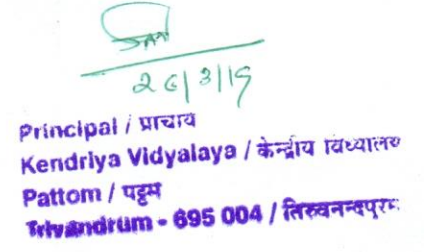 Principal / प्राचार्य
Kendriya Vidyalaya / केन्द्रीय विद्यालय
Pattom / पट्टम
Trivandrum - 695 004 / तिरुवनन्तपुरम